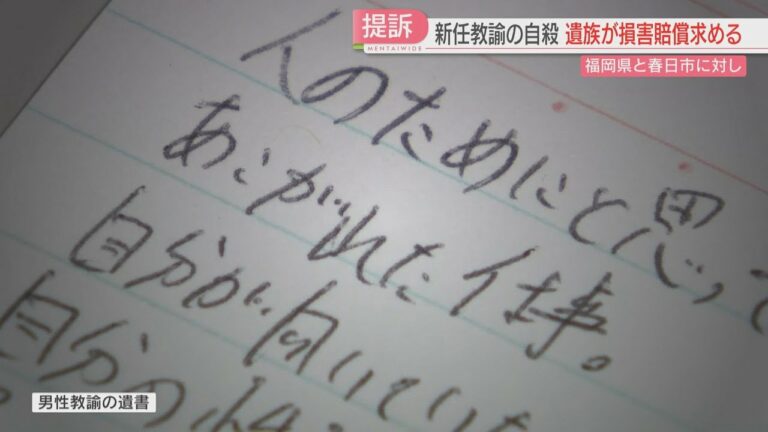 提訴
MENTAIWIDE
新任教諭の自殺 遺族が損害賠償求める
福岡県と春日市に対し
人のためにと思って
あこがれた仕事。
自分が向いてい
自分の
男性教諭の遺書